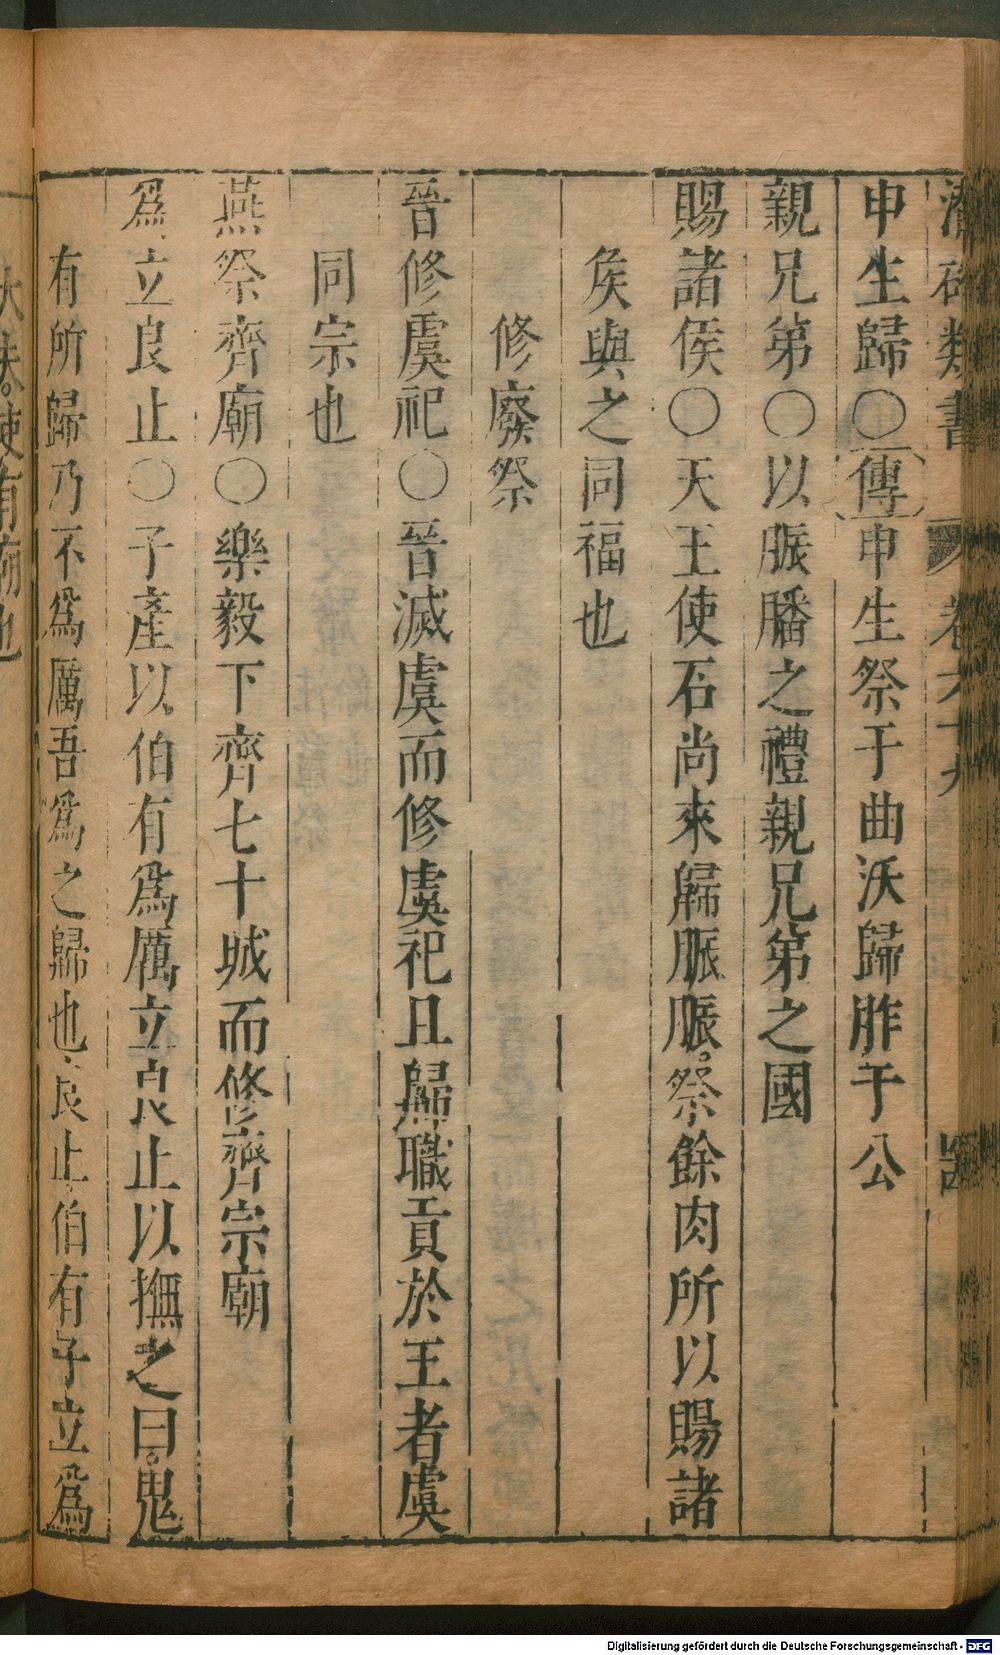 潛確類書 卷六十九
申生歸〇傳申生祭于曲沃歸胙于公
親兄第〇以脤膰之禮親兄第之國
賜諸侯〇天王使石尚來歸脤脤。祭餘肉所以賜諸
矦與之同福也
修廢祭
晉修虞祀〇晉滅虞而修虞祀且歸職貢於王者虞
同宗也
燕祭齊廟〇樂毅下齊七十城而修齊宗廟
爲立良止〇子產以伯有爲厲立良止以撫之曰。鬼
有所歸乃不爲厲吾爲之歸也良止伯有子立爲
大夫。使有廟也
Digitalisierung gefördert durch die Deutsche Forschungsgemeinschaft - DFG